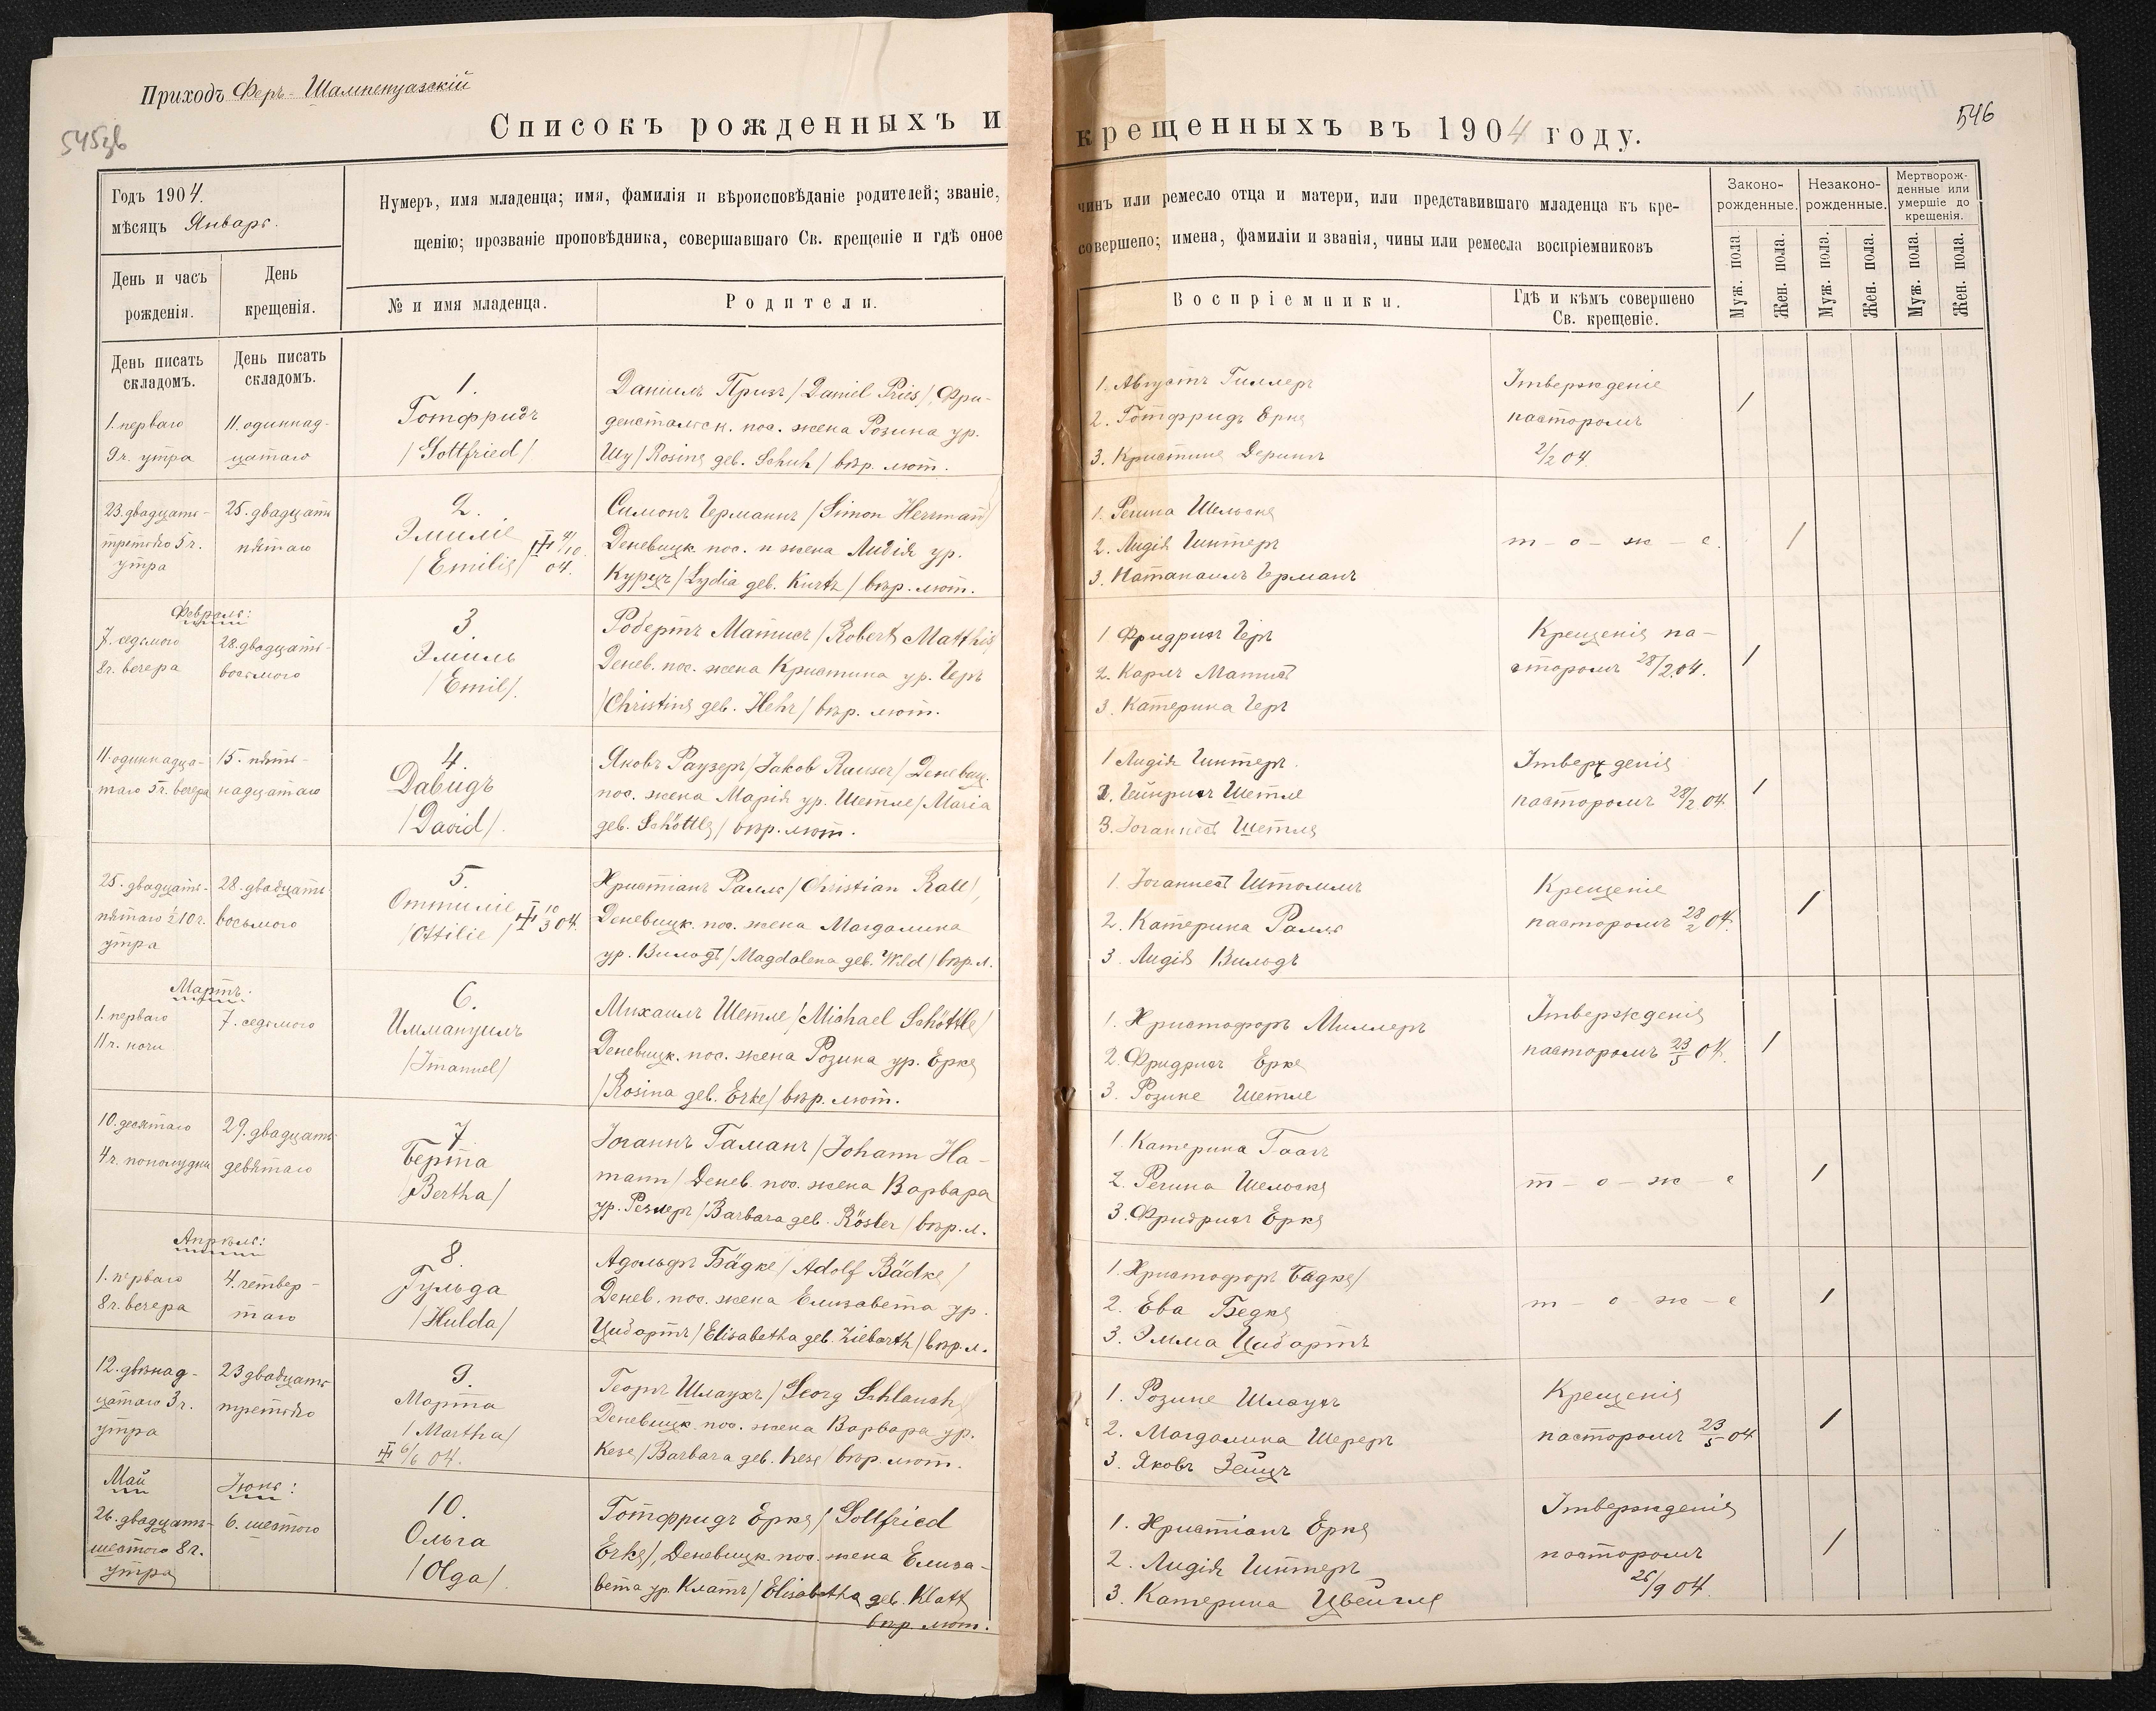 Приходъ Феръ-Шампенуазскій
545зб
546
Списокъ рожденныхъ и крещенныхъ въ 1904 году.
Годъ 1904.
мѣсяцъ Январь.
Нумеръ, имя младенца; имя, фамилія и вѣроисповѣданіе родителей; званіе, чинъ или ремесло отца и матери, или представившаго младенца къ кре-
щенію; прозваніе проповѣдника, совершавшаго Св. крещеніе и гдѣ оное совершено; имена, фамиліи и званія, чины или ремесла воспріемниковъ
Законо-
рожденные.
Незаконо-
рожденные.
Мертворож-
денные или
умершіе до
крещенія.
День и часъ
рожденія.
День
крещенія.
№ и имя младенца.
Родители.
Воспріемники.
Гдѣ и кѣмъ совершено
Св. крещеніе.
Муж. пола.
Жен. пола.
Муж. пола.
Жен. пола.
Муж. пола.
Жен. пола.
День писать
складомъ.
День писать
складомъ.
1. перваго
9 ч. утра
11. одиннад-
цатаго
1.
Готфридъ
/Gottfried/
Даніилъ Призъ /Daniel Pries/, Фри-
денстальск. пос. жена Розина ур.
Шу /Rosine geb. Schuh/ вѣр. лют.
1. Августъ Гиллеръ
2. Готфридъ Ерке
3. Кристине Дерингъ
Утвержденіе
пасторомъ
2/2 04.
/
23. двадцать-
третьяго 5 ч.
утра
25. двадцать
пятаго
2.
Эмиліе
/Emilie/
04.
Симонъ Германнъ /Simon Herrmann/
Деневицк. пос. и жена Лидія ур.
Курцъ /Lydia geb. Kurtz/ вѣр. лют.
1. Регина Шельске
2. Лидія Гинтеръ
3. Натанаилъ Германъ
т - о - ж - е.
/
Февраль:
7. седьмого
8 ч. вечера
28. двадцать-
восьмого
3.
Эмиль
/Emil/.
Робертъ Матисъ /Robert Matthis
Денев. пос. жена Кристина ур. Геръ
/Christine geb. Hehr/ вѣр. лют.
1. Фридрихъ Геръ
2. Карлъ Матисъ
3. Катерина Геръ
Крещенія па-
сторомъ 28/2 04.
/
11. одиннадца-
таго 5 ч. вечера
15. пят-
надцатаго
4.
Давидъ
/David/.
Яковъ Раузеръ /Jakob Rauser/ Деневиц.
пос. жена Марія ур. Шетле /Maria
geb. Schöttle/ вѣр. лют.
1 Лидія Гинтеръ.
2. Гейнрихъ Шетле
3. Іоганнесъ Шетле
Утвержденія
пасторомъ 28/2 04
/
25. двадцать-
пятаго ½10 ч.
утра
28. двадцать
восьмого
5.
Оттиліе
/Ottilie/
10/3 04.
Христіанъ Ралль /Christian Rall/,
Деневицк. пос. жена Магдалина
ур. Вильдъ /Magdalena geb. Wild/ вѣр. л.
1. Іоганнесъ Штолль
2. Катерина Ралль
3. Лидія Вильдъ
Крещеніе
пасторомъ 28/2 04.
/
Мартъ.
1. перваго
11 ч. ночи
7. седьмого
6.
Иммануилъ
/Imanuel/
Михаилъ Шетле /Michael Schöttle/
Деневицк. пос. жена Розина ур. Ерке
/Rosina geb. Erke/ вѣр. лют.
1. Христофоръ Миллеръ
2. Фридрихъ Ерке
3. Розине Шетле
Утвержденія
пасторомъ 23/5 04.
/
10. десятаго
4 ч. пополудни
29. двадцать-
девятаго
7
Берта
/Bertha/
Іоганнъ Гаманъ /Johann Ha-
mann/ Денев. пос. жена Варвара
ур. Резлеръ /Barbara geb. Rösler/ вѣр. л.
1. Катерина Гаагъ
2. Регина Шельске
3. Фридрихъ Ерке
т - о - ж - е
/
Апрѣль:
1. перваго
8 ч. вечера
4. четвер-
таго
8.
Гульда
/Hulda/
Адольфъ Бäдке /Adolf Bädke/
Денев. пос. жена Елизавета ур.
Цибартъ /Elisabetha geb. Ziebarth/ вѣр. л.
1. Христофоръ Бäдке/
2. Ева Бедке
3. Эмма Цибартъ
т - о - ж - е
/
12. двѣнад-
цатаго 3 ч.
утра
23 двадцать
третьяго
9.
Марта
/Martha/
6/6 04.
Георгъ Шлаухъ /Georg Schlauch/
Деневицк. пос. жена Варвара ур.
Кезе /Barbara geb. Kese/ вѣр. лют.
1. Розине Шлаухъ
2. Магдалина Шереръ
3. Яковъ Зейцъ
Крещенія
пасторомъ 23/5 04
/
Май
Іюнь:
26. двадцать-
шестого 8 ч.
утра
6. шестого
10.
Ольга
/Olga/.
Готфридъ Ерке /Gottfried
Erke/, Деневицк. пос. жена Елиза-
вета ур. Клатъ /Elisabetha geb. Klatt
вѣр. лют.
1. Христіанъ Ерке
2. Лидія Гинтеръ
3. Катерина Цвейгле
Утвержденія
пасторомъ
26/9 04.
/